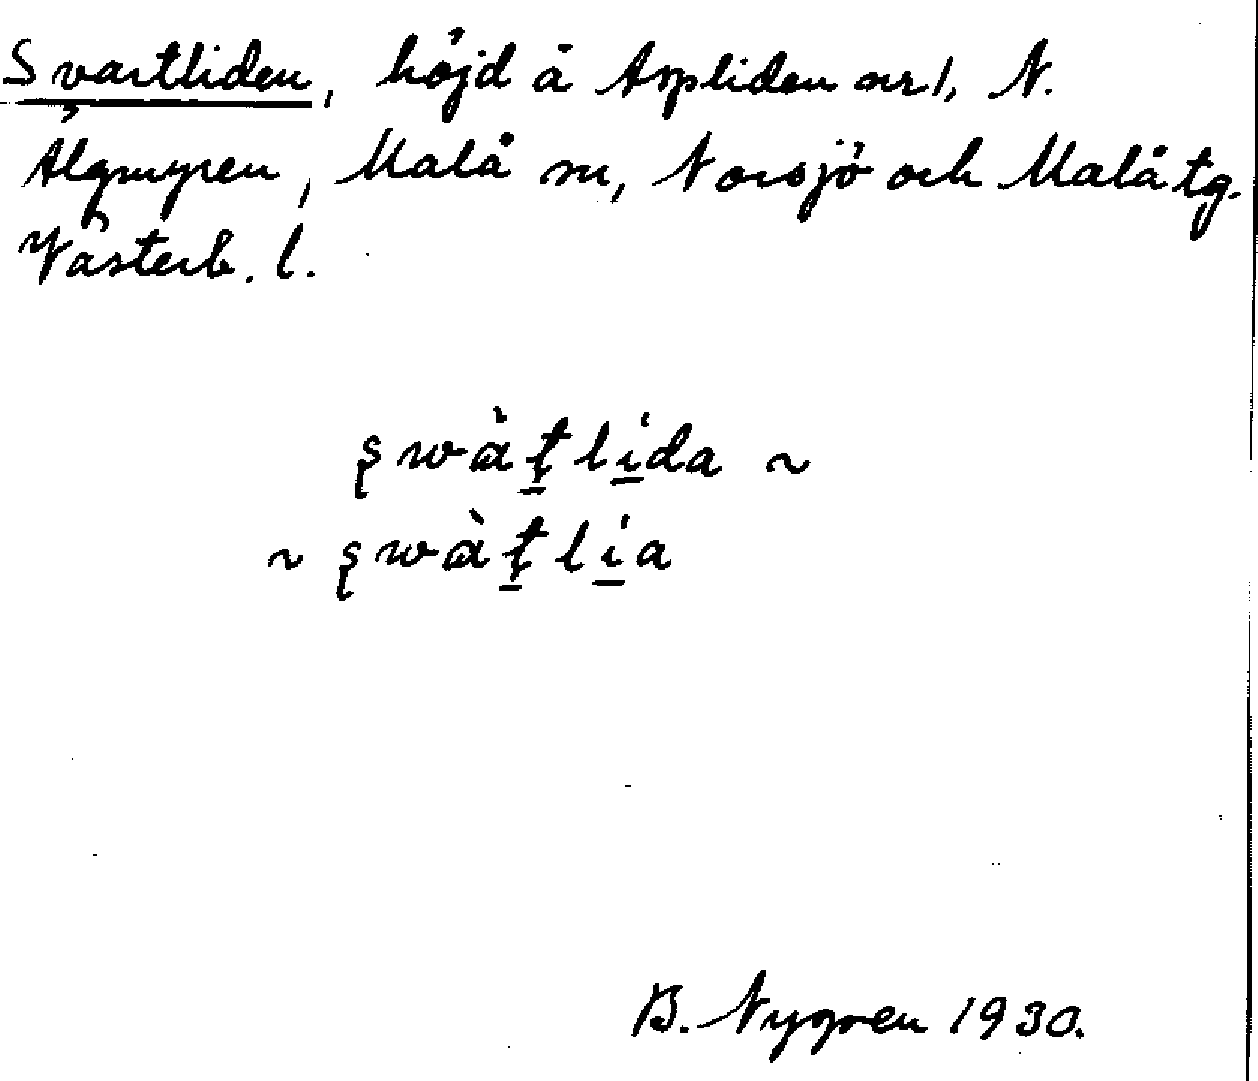 Svartliden, höjd å Aspliden nr 1, N.
Älgmyren, Malå sn, Norsjö och Malå tg.
Västerb. l.
ʂwàt̠lída ~
~ ʂwàt̠lía
B. Nygren 1930.